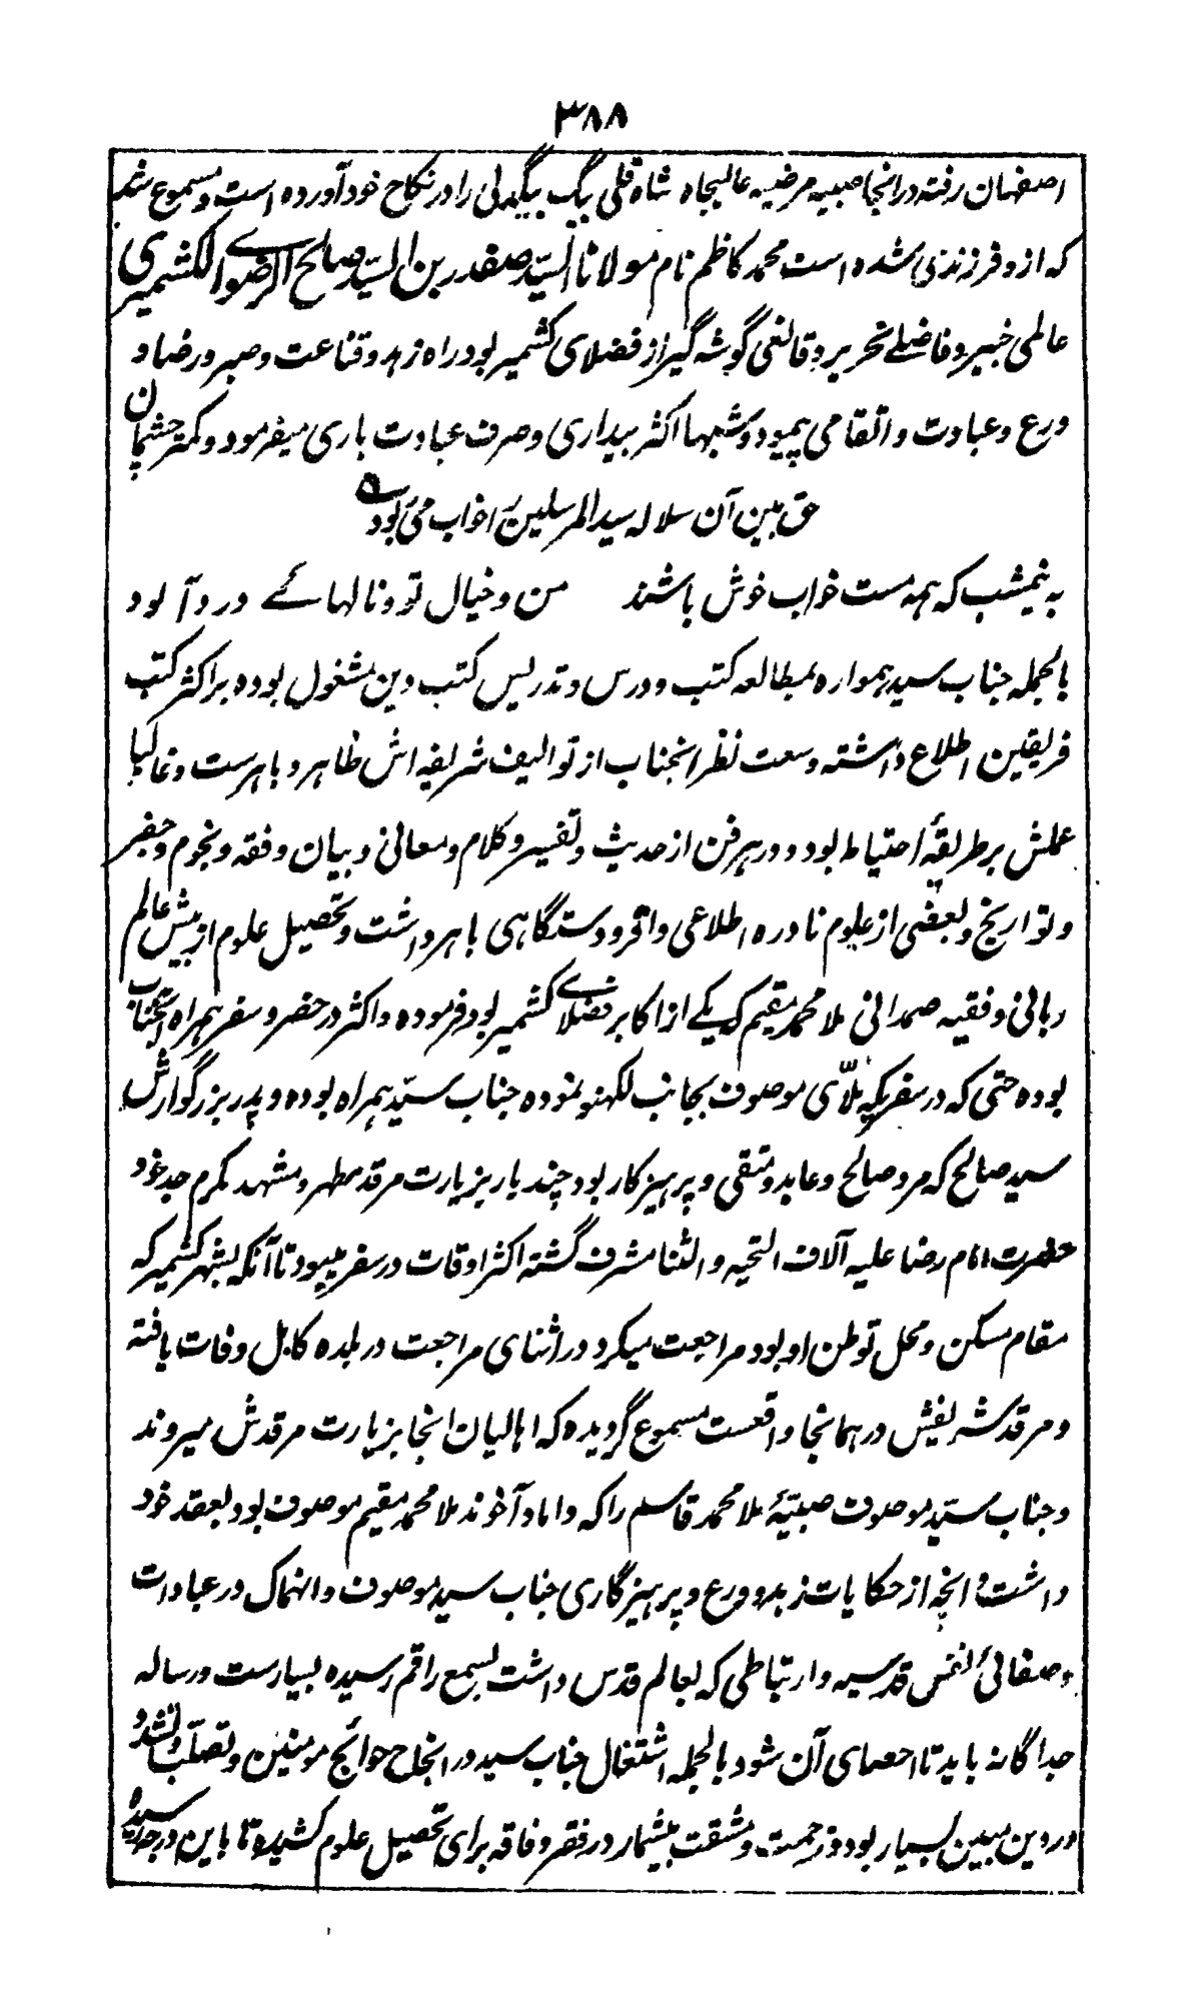 ۳۸۸
اصفهان رفته درانجا صبیه مرضیه عالیجاه شاه قلی بیگ بیگدلی را در نکاح خود آورده است و مسموع شد
که ازو فرزندی شده است محمد کاظم نام مولانا السیّد صفدر بن السیّد صالح الرضوے الکشمیری
عالمی خبیر و فاضلے نحریر و قانعی گوشه گیر از فضلای کشمیر بود راه زهد و قناعت و صبر و رضا و
ورع و عبادت و اتقا می پیمود و شبها اکثر بیداری و صرف عبادت باری میفرمود و کمتر چشمان
حق بین آن سلاله سید المرسلین اخواب می ربود ه
به نیمشب که همه مست خواب خوش باشند من و خیال تو و نالهائے درد آلود
بالجمله جناب سید همواره بمطالعه کتب و درس و تدریس کتب دین مشغول بوده بر اکثر کتب
فریقین اطلاع داشته وسعت نظر انجناب از توالیف شریفه اش ظاهر و باهرست و غالبا
عملش بر طریقهٔ احتیاط بود و در هر فن از حدیث و تفسیر و کلام و معانی و بیان و فقه و نجوم و جفر
و تواریخ و بعضی از علوم نادره اطلاعی وافر و دستگاهی باهر داشت و تحصیل علوم از پیش عالم
ربانی و فقیه صمدانی ملا محمد مقیم که یکے از اکابر فضلاے کشمیر بود فرموده و اکثر در حضر و سفر همراه آنجناب
بوده حتی که در سفریکه ملّای موصوف بجانب لکهنو نموده جناب سیّد همراه بوده و پدر بزرگوارش
سید صالح که مرد صالح و عابد و متقی و پرهیزکار بود چند بار بزیارت مرقد مطهر و مشهد مکرم جد خود
حضرت امام رضا علیه آلاف التحیه و الثنا مشرف گشته اکثر اوقات در سفر میبود تا آنکه بشهر کشمیر که
مقام مسکن و محل توطن او بود مراجعت میکرد در اثنای مراجعت در بلده کابل وفات یافته
و مرقد شریفش در همانجا واقعست مسموع گردیده که اهالیان انجا بزیارت مرقدش میروند
و جناب سیّد موصوف صبیّهٔ ملا محمد قاسم را که داماد آخوند ملا محمد مقیم موصوف بود بعقد خود
داشت و انچه از حکایات زهد و ورع و پرهیزگاری جناب سید موصوف و انهماک در عبادات
و صفائی نفس قدسیه و ارتباطی که بعالم قدس داشت بسمع راقم رسیده بسیارست و رساله
جداگانه باید تا احصای آن شود بالجمله اشتغال جناب سید در انجاح حوائج مومنین و تصلّب و تشدد
در دین مبین بسیار بود و زحمت و مشقت بیشمار در فقر و فاقه برای تحصیل علوم کشیده تا باین درجه رسیده